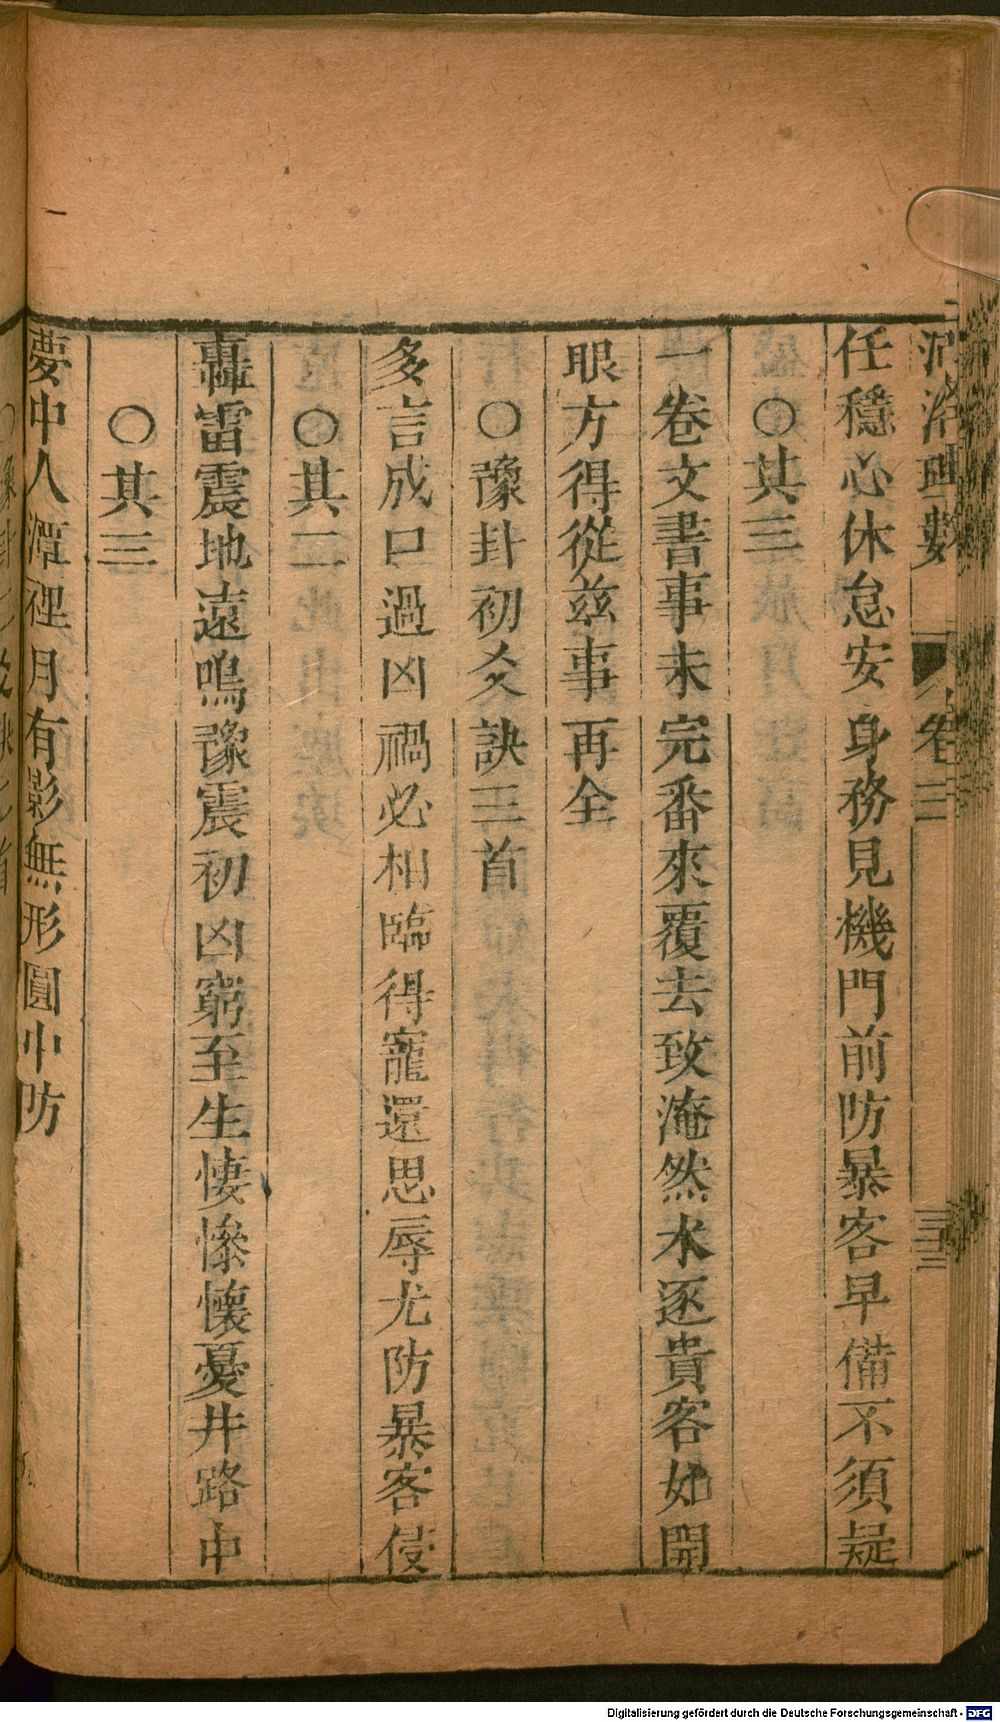 任穩心休怠安身務見機門前防暴客早備不須疑
〇其三
一卷文書事未完番來覆去致淹然木逐貴客如開
眼方得從兹事再全
〇豫卦初爻訣三首
多言成口過凶禍必相臨得寵還思辱尤防暴客侵
〇其二
轟雷震地遠鳴豫震初凶窮至生悽慘懷憂井路中
〇其三
夢中人潭裡月有影無形圓中防
卷三
三三
Digitalisierung gefördert durch die Deutsche Forschungsgemeinschaft - DFG